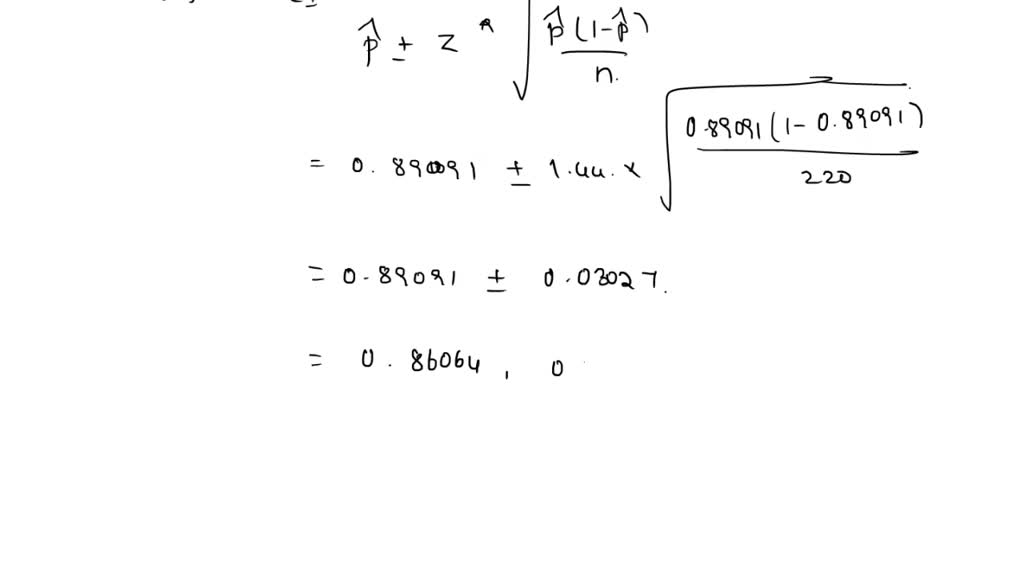 p̂ ± z * √ p̂ (1-p̂) / n.
= 0.89091 ± 1.44. × √ 0.89091 (1- 0.89091) / 220
= 0.89091 ± 0.03027.
= 0.86064 , 0